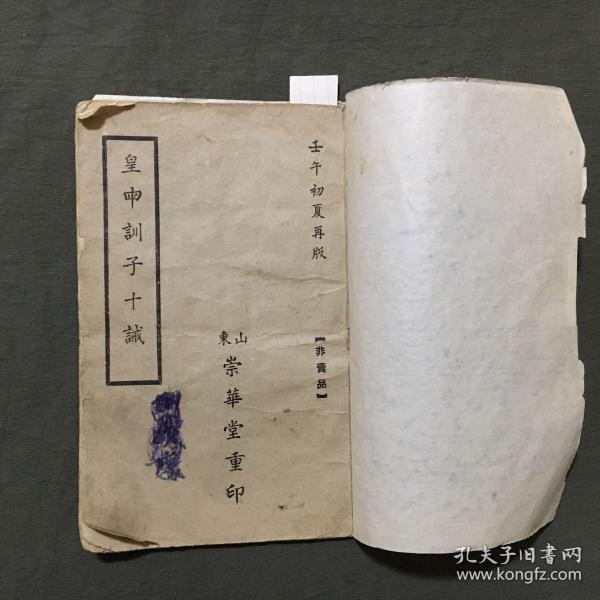 壬午初夏再版
【非賣品】
山東
崇華堂重印
皇母訓子十誡
孔夫子旧書网
www.kongfz.com